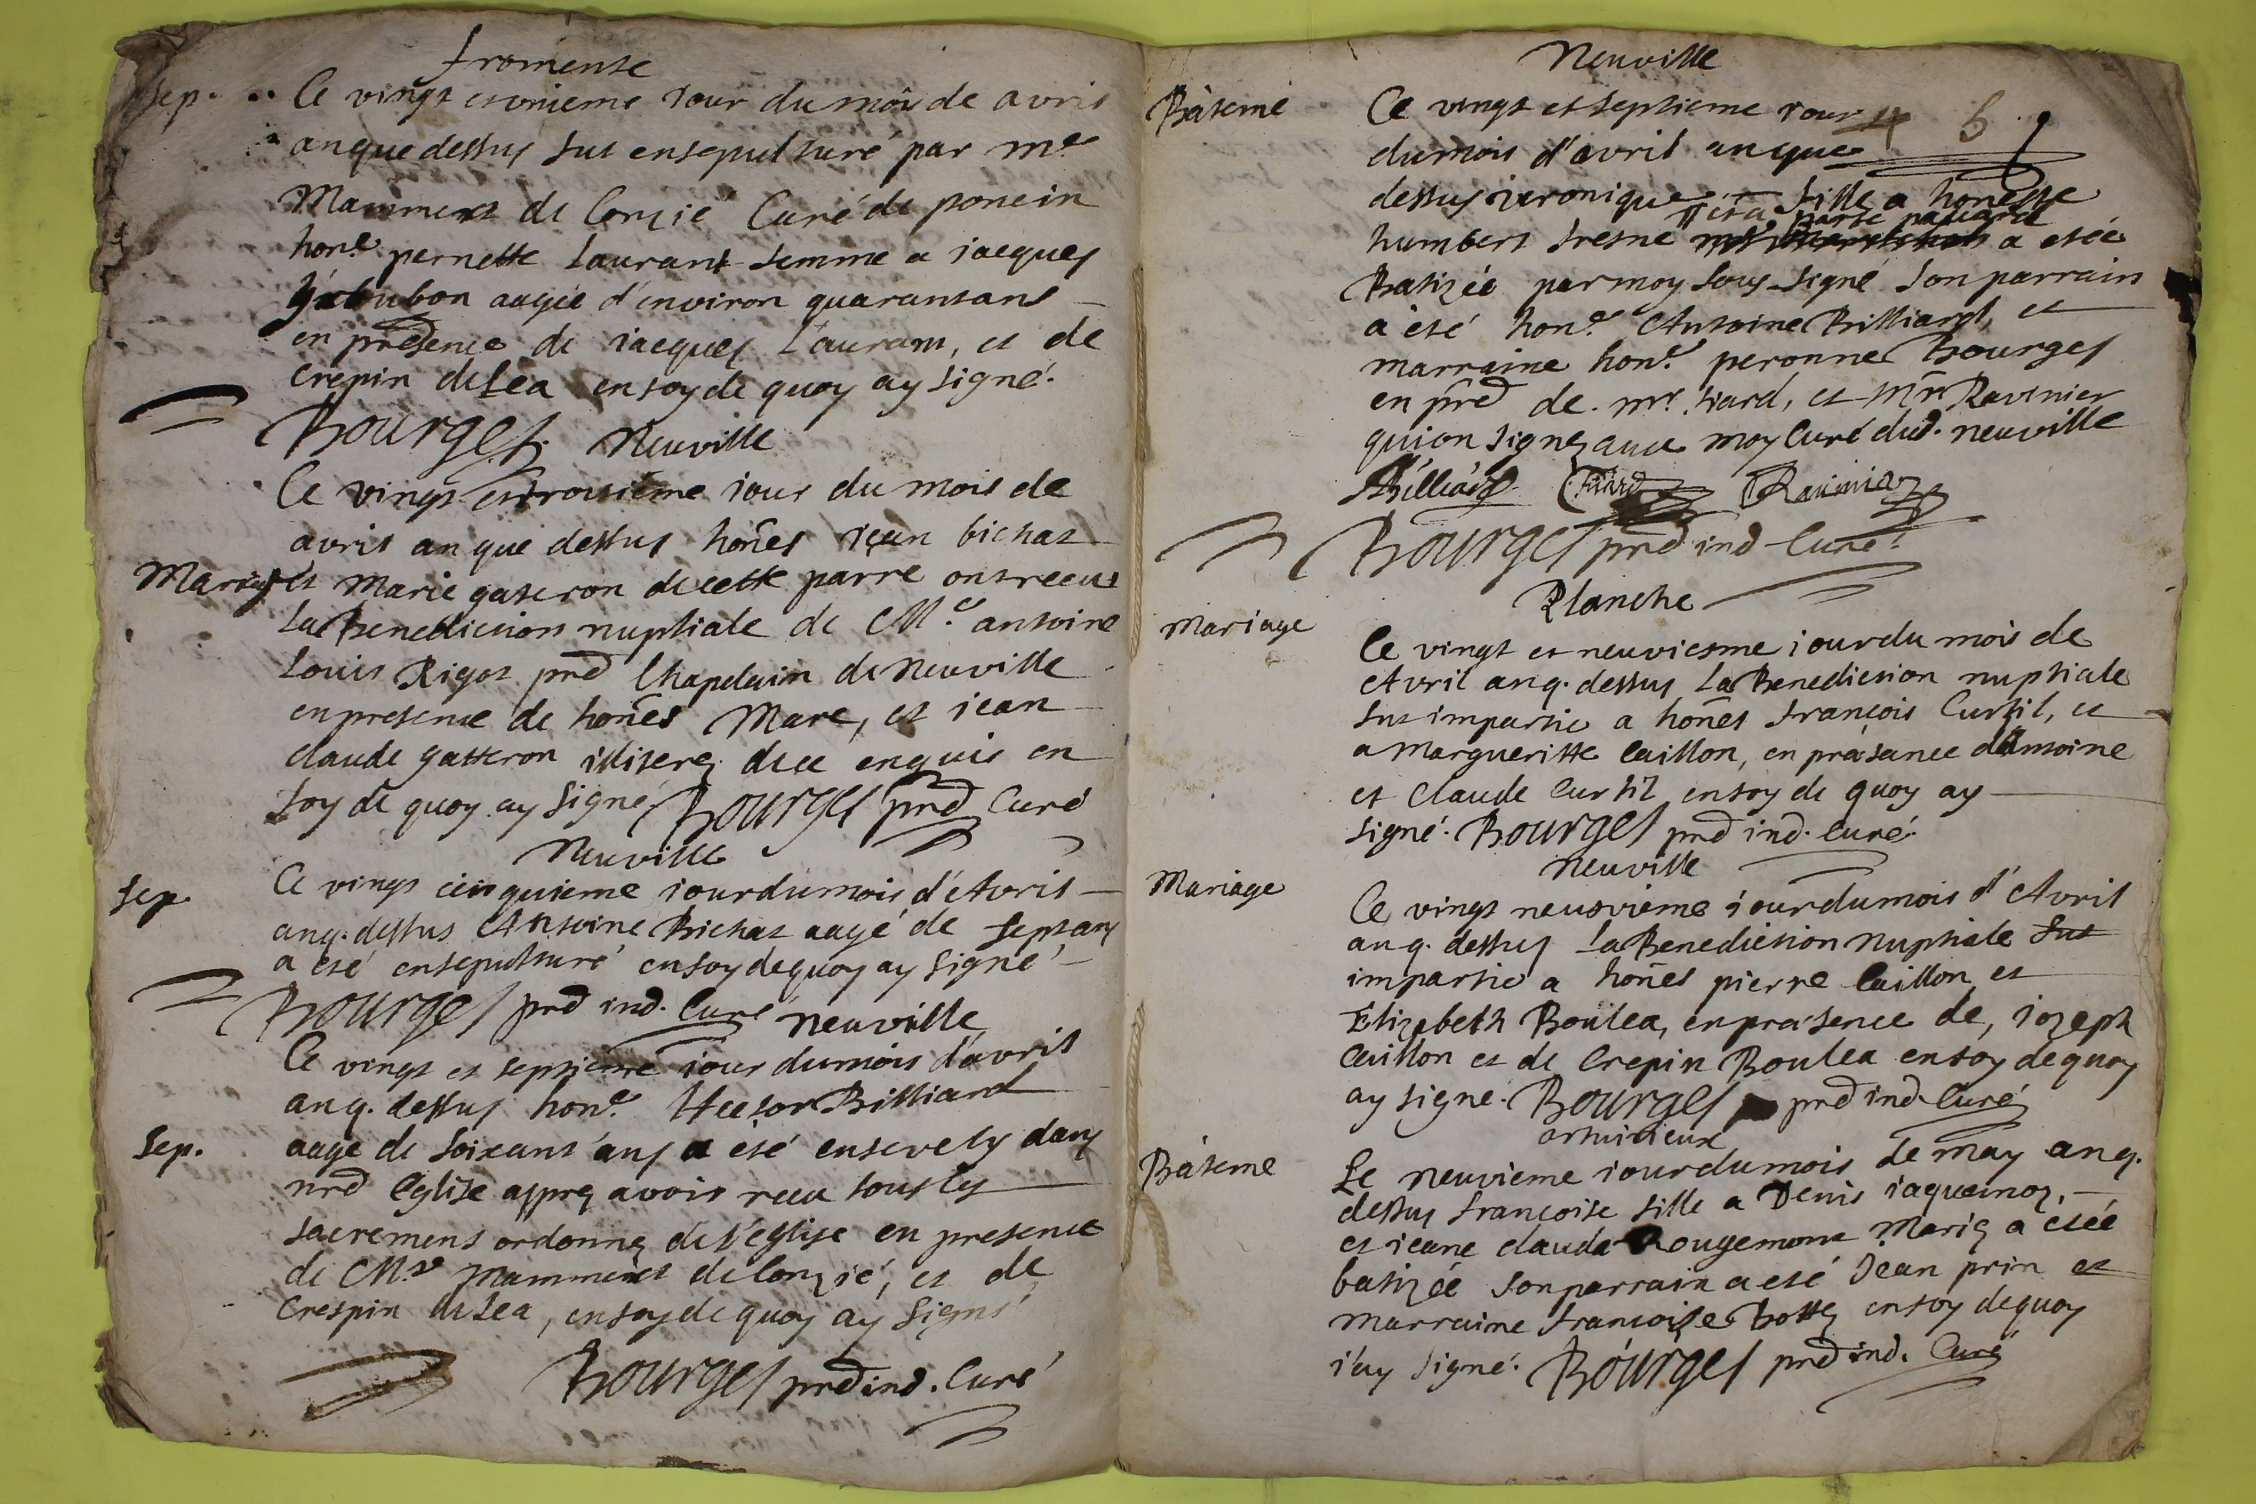 fromente
Sep. Ce vingt et unieme jour du mois de avril
an que dessus fut ensepulturé par me
Mammert de Conzié Curé de poncin
hone pernette laurant femme a jacques
aagée d'environ quarantans
en presence de jacques laurant, et de
crepin de Lea en foy de quoy ay signé.
Bourges. Neuville
Ce vingt et troisieme jour du mois de
avril an que dessus hones jean bichat
Mariage et Marie gateron de cette parre ont receu
La Benediction nuptiale de Me antoine
Louis Rigot prd Chapelain de Neuville
en presence de hones Marc, et jean
claude gatteron illiterez de ce enquis en
foy de quoy ay signé Bourges prd Curé
Neuville
Sep. Ce vingt cinquieme jour du mois d'Avril
anq. dessus Antoine Bichat aagé de sept ans
a eté ensepulturé en foy de quoy ay signé
Bourges prd ind. Curé Neuville
Ce vingt et septieme jour du mois d'avril
anq. dessus hone Hector Billiard
Sep. aagé de soixant'ans a eté ensevely dans
nrd Eglise apprez avoir receu tous les
sacremens ordonnez de l'eglise en presence
de Mre Mammert de Conzié, et de
Crespin de Lea, en foy de quoy ay signé
Bourges prd ind. Curé
Neuville
Bateme Ce vingt et septieme jour
5
du mois d'avril an que
dessus veronique fille a honeste
humbert fresne a etée
Batizée par moy sous-signé son parrain
a eté hone Antoine Billiard, et
marraine hone peronne Bourges
en prd de mre tiard, et Mr Ravinier
qui on signez avec moy Curé dud. neuville
Billiard Tiard Ravinier
Bourges prd ind Curé
Planche
Mariage Ce vingt et neuviesme jour du mois de
Avril anq. dessus La Benediction nuptiale
fut impartie a hones françois Curtil, et
a Margueritte Caillon, en præsance d'Antoine
et Claude Curtil en foy de quoy ay
signé. Bourges prd ind. Curé.
Neuville
Mariage Ce vingt neuvieme jour du mois d'Avril
anq. dessus La Benediction Nuptiale fut
impartie a hones pierre Caillon, et
Elizabeth Boulea, en præsence de, jozeph
Caillon et de Crepin Boulea en foy de quoy
ay signé. Bourges prd ind. Curé
Bateme Le neuvieme jour du mois de may anq.
dessus françoise fille a Denis jaquemoz,
et jeane claude Rougemont Mariez a etée
batizée son parrain a eté Jean prin et
marraine françoise Bottez en foy de quoy
j'ay signé. Bourges prd ind. Curé